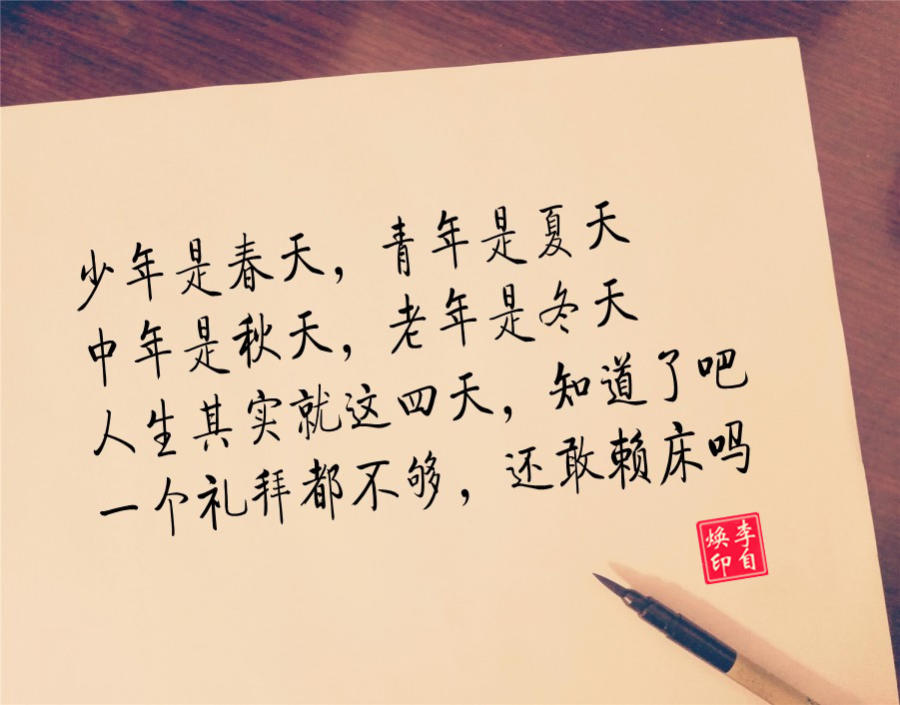 少年是春天，青年是夏天
中年是秋天，老年是冬天
人生其实就这四天，知道了吧
一个礼拜都不够，还敢赖床吗
李自
焕印